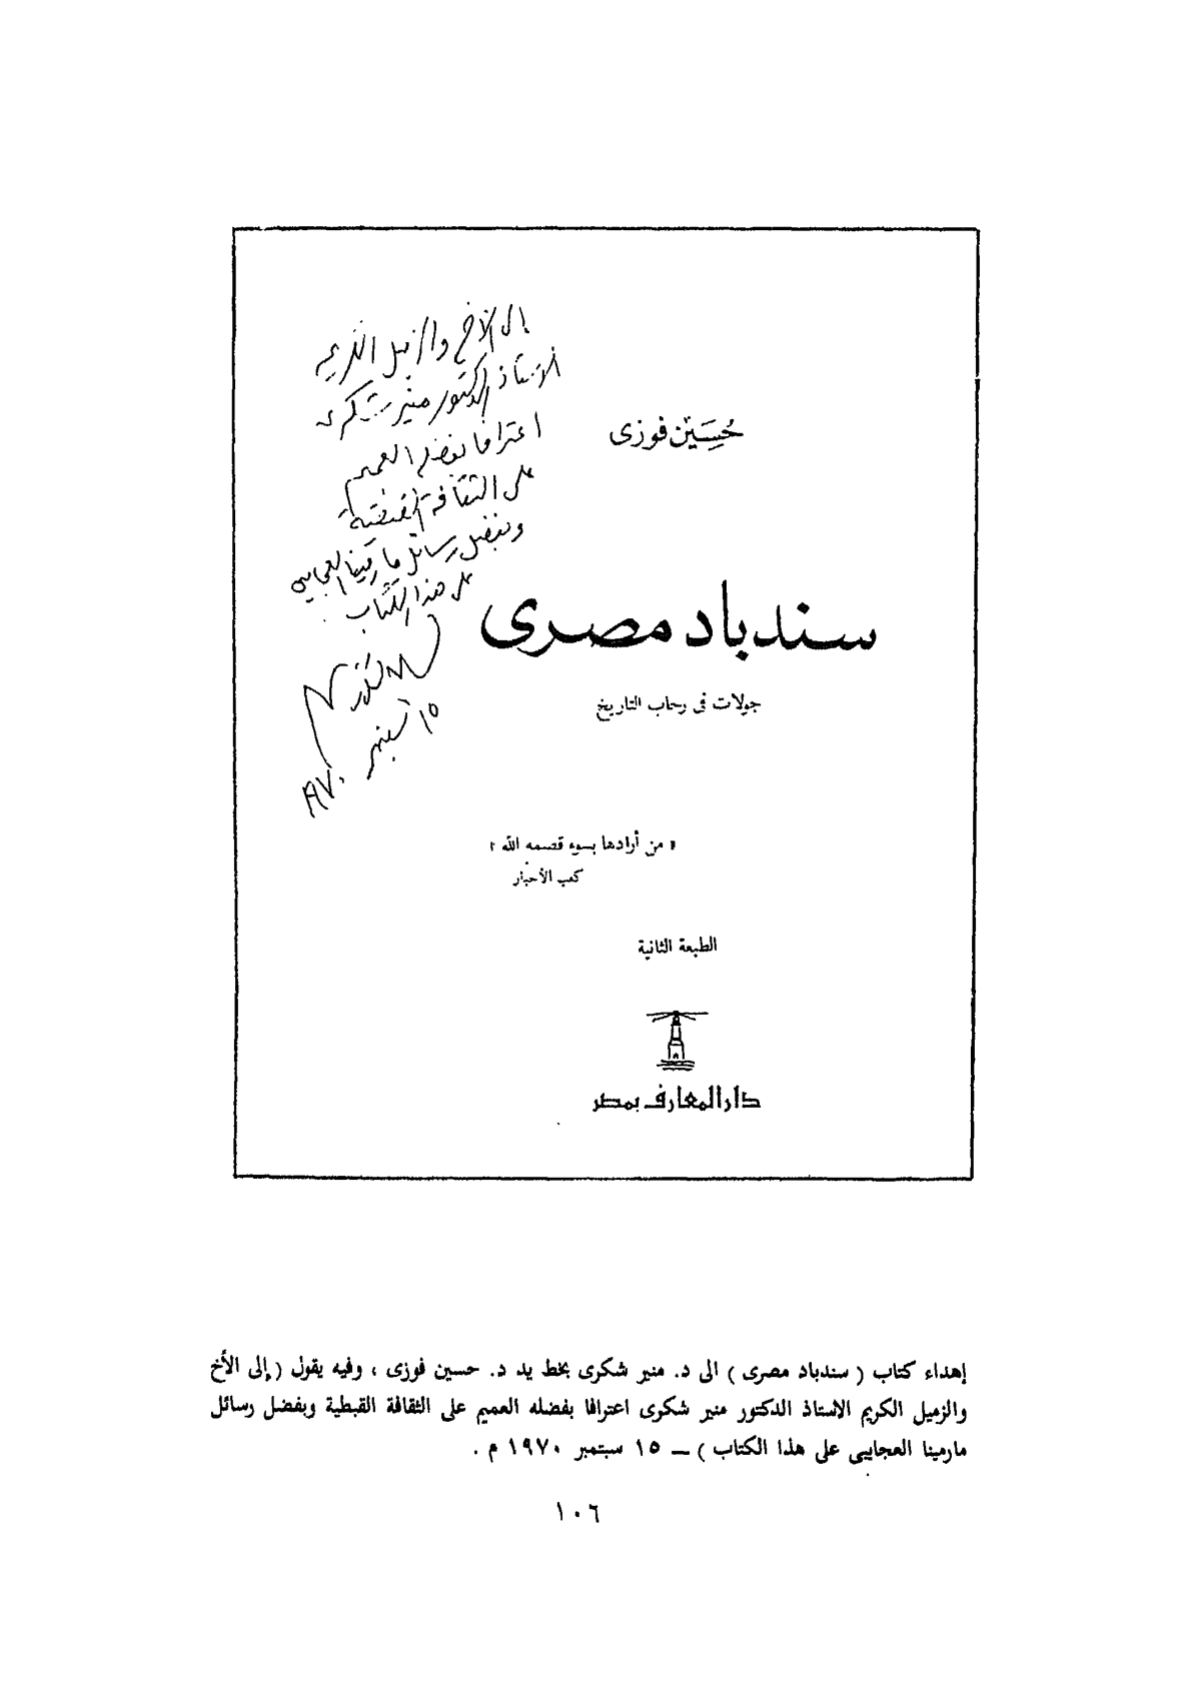 إلى الأخ والزميل الكريم
الاستاذ الدكتور منير شكرى
اعترافا بفضله العميم
على الثقافة القبطية
وبفضل رسائل مارمينا العجايبى
على هذا الكتاب
١٥ سبتمبر
١٩٧٠
حُسَين فوزى
سندباد مصرى
جولات فى رحاب التاريخ
« من أرادها بسوء قصمه الله »
كعب الأحبار
الطبعة الثانية
دار المعارف بمصر
إهداء كتاب ( سندباد مصرى ) الى د. منير شكرى بخط يد د. حسين فوزى ، وفيه يقول ( إلى الأخ
والزميل الكريم الاستاذ الدكتور منير شكرى اعترافا بفضله العميم على الثقافة القبطية وبفضل رسائل
مارمينا العجايبى على هذا الكتاب ) ــ ١٥ سبتمبر ١٩٧٠ م .
١٠٦